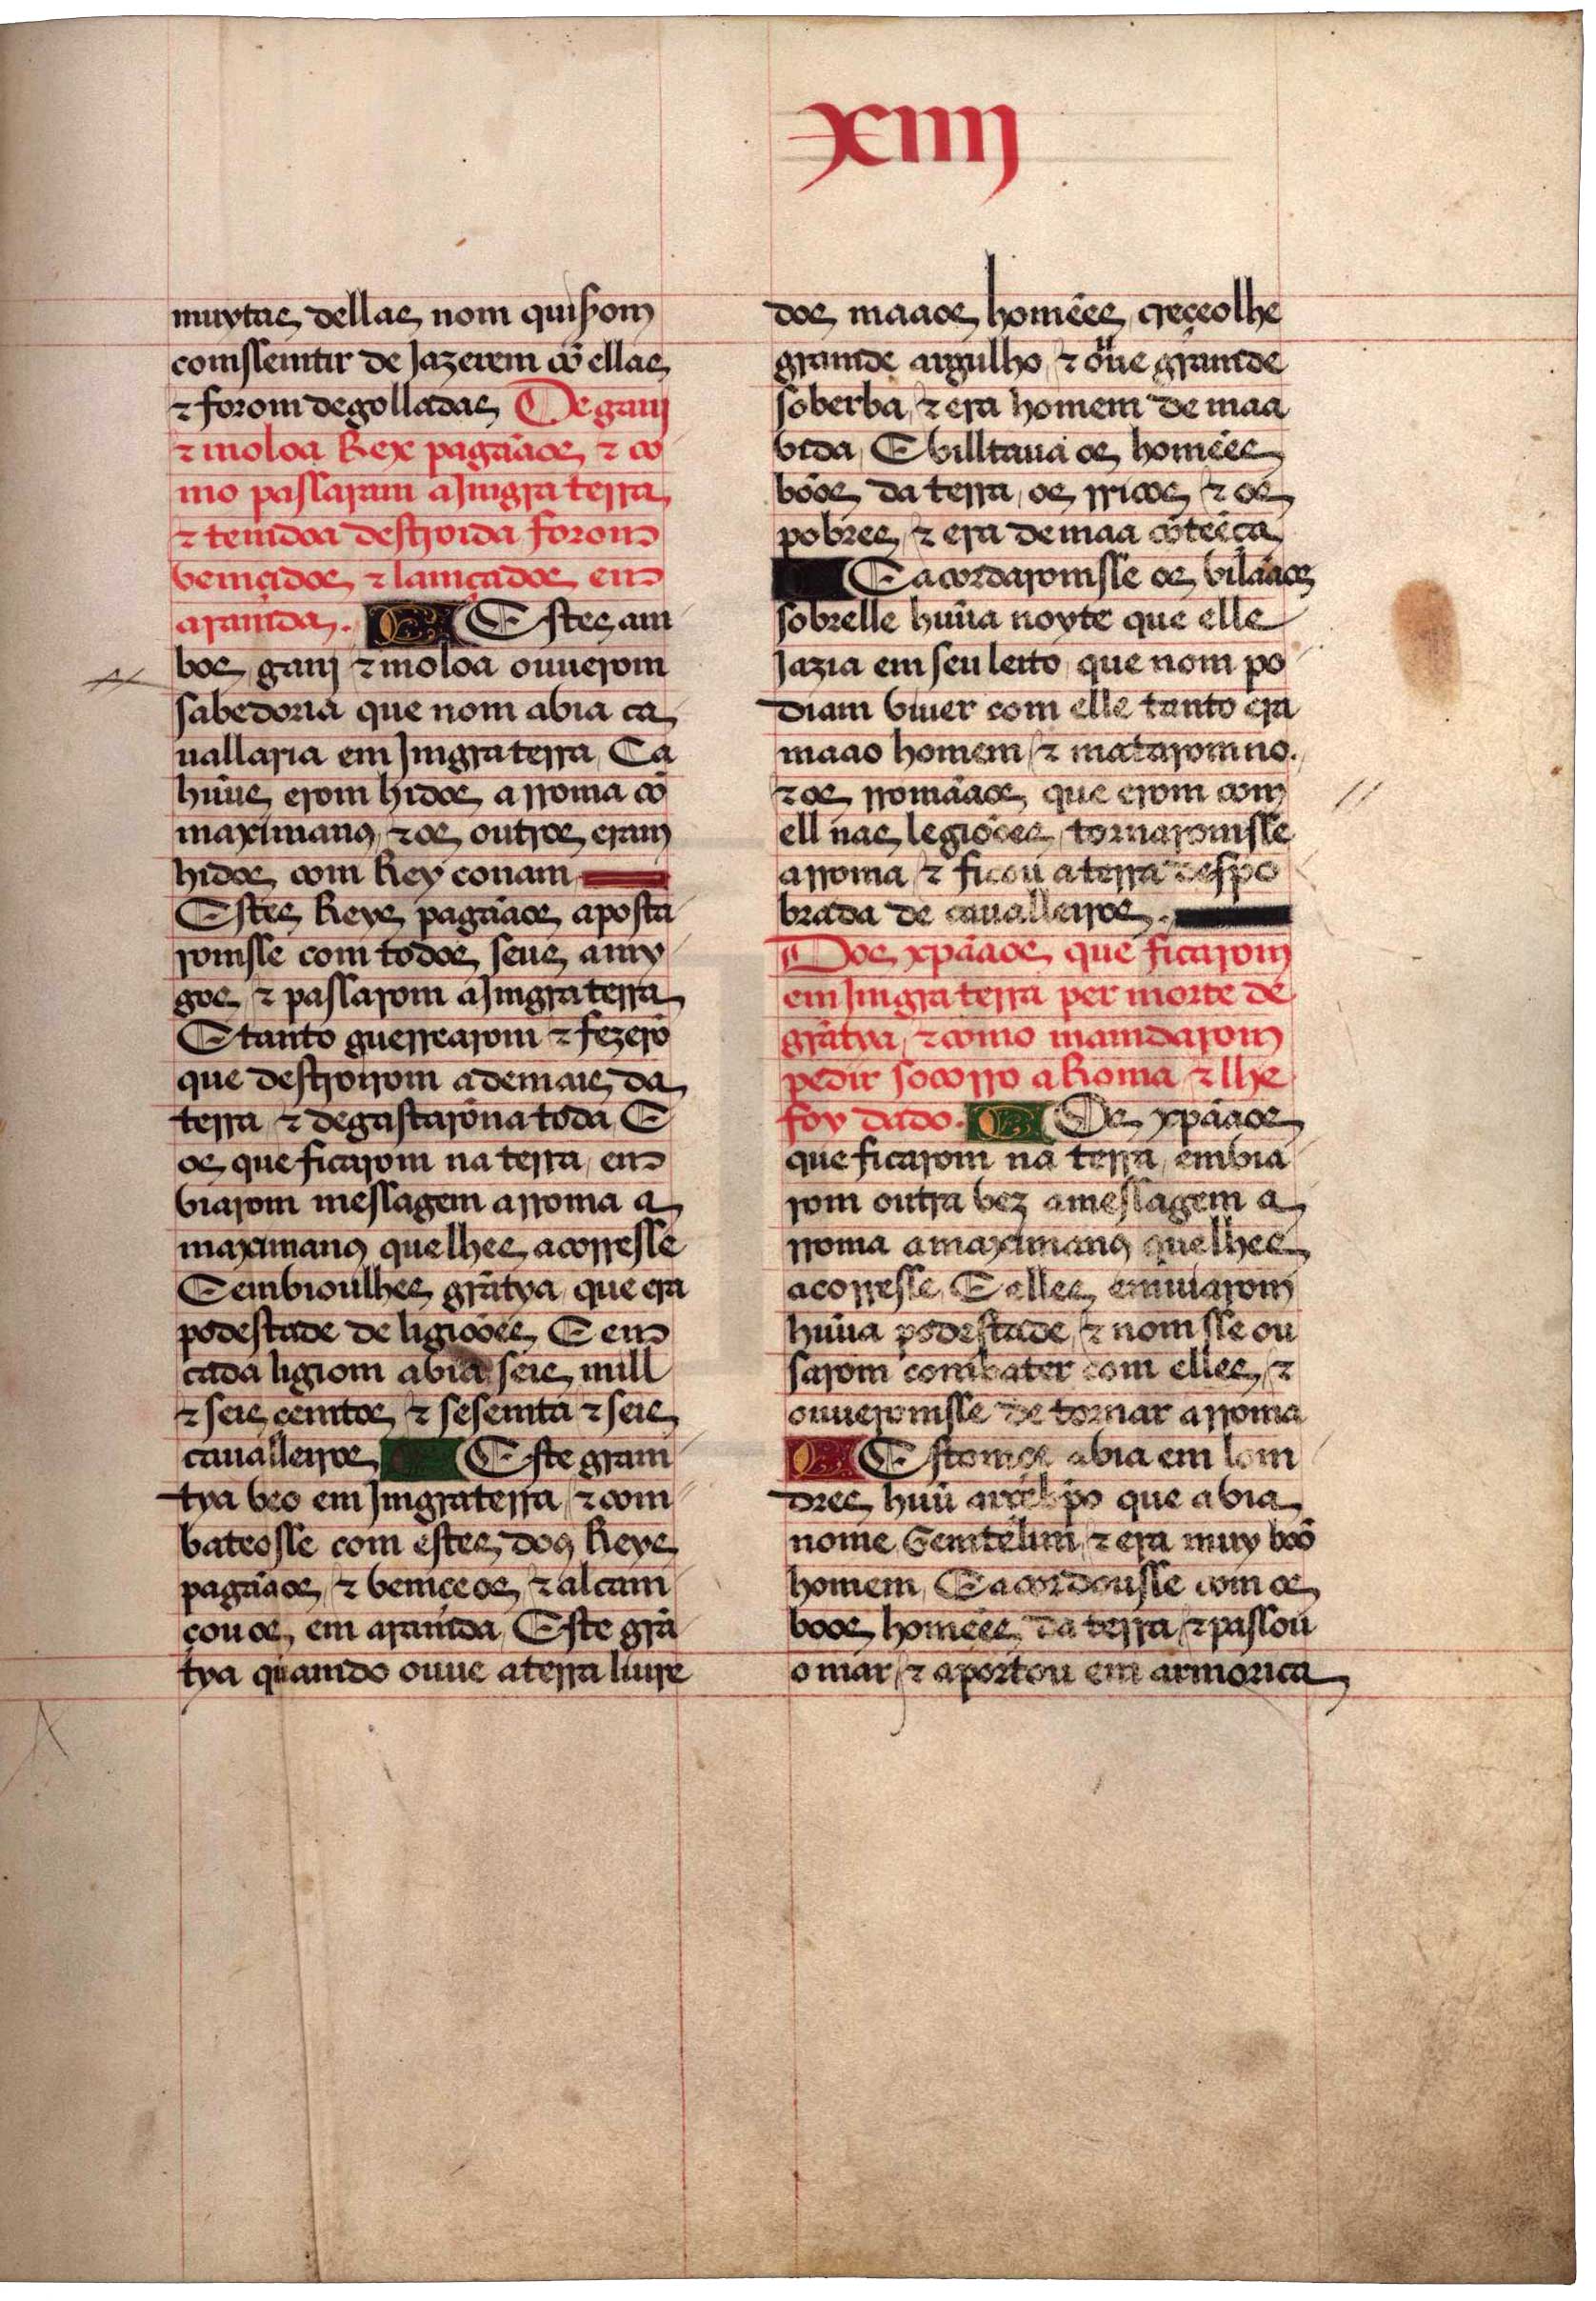 xiiij
muytas dellas nom quiserom
comssemtir de Jazerem cõ ellas
⁊ forom degolladas De ganj
⁊ moloa Rex pagãaos ⁊ co
mo passaram a Jmgra terra
⁊ temdoa destroida forom
vemçidos ⁊ lamçados em
aramda. Estes am
bos ganj ⁊ moloa ouuerom
sabedoria que nom abia ca
uallaria em Jmgra terra, Ca
hũus erom hidos a rroma cõ
maximanꝯ ⁊ os outros eram
hidos com Rey conam
Estes Reys pagãaos aposta
romsse com todos seus amy
gos ⁊ passarom a Jmgra terra
E tanto guerrearom ⁊ fezerõ
que destroirom a demais da
terra ⁊ degastarõna toda E
os que ficarom na terra, em
biarom messagem a rroma a
maximanꝯ que lhes acorresse
E embioulhes grãtya, que era
podestade de ligioões, E em
cada ligiom abia seis mill
⁊ seis cemtos, ⁊ sesemta ⁊ seis
caualleiros Este gram
tya veo em Jmgra terra, ⁊ com
bateosse com estes doꝯ Reys
pagãaos, ⁊ vemçeos, ⁊ alcam
çou os, em aramda, Este grã
tya quamdo ouue a terra liure
dos maaos homẽes, creçeolhe
gramde argulho, ⁊ oue gramde
soberba, ⁊ era homem de maa
vida, E villtaua os homẽes
bõos da terra, os rricos, ⁊ os
pobres, ⁊ era de maa cõtẽeça
E acordaromsse os vilãaos
sobrelle hũua noyte que elle
Jazia em seu leito, que nom po
diam viuer com elle tanto era
maao homem, ⁊ mataromno.
⁊ os rromãaos, que erom com
ell nas legiões, tornaromsse
a rroma, ⁊ ficou a terra despo
brada de caualleiros.
Dos xpãaos, que ficarom
em Jmgra terra per morte de
grãtya, ⁊ como mamdarom
pedir socorro a Roma ⁊ lhe
foy dado. Os xpãaos
que ficarom na terra, embia
rom outra vez a messagem a
rroma a maximanꝯ que lhes
acorresse, E elles, emuiarom
hũua podestade, ⁊ nom sse ou
sarom combater com elles, ⁊
ouueromsse de tornar a rroma
Estomçe abia em lom
dres, huũ arçebpõ que abia
nome, Gemtelim, ⁊ era muy boõ
homem, E acordousse com os
boos homẽes, da terra, ⁊ passou
o mar, ⁊ aportou em armorica